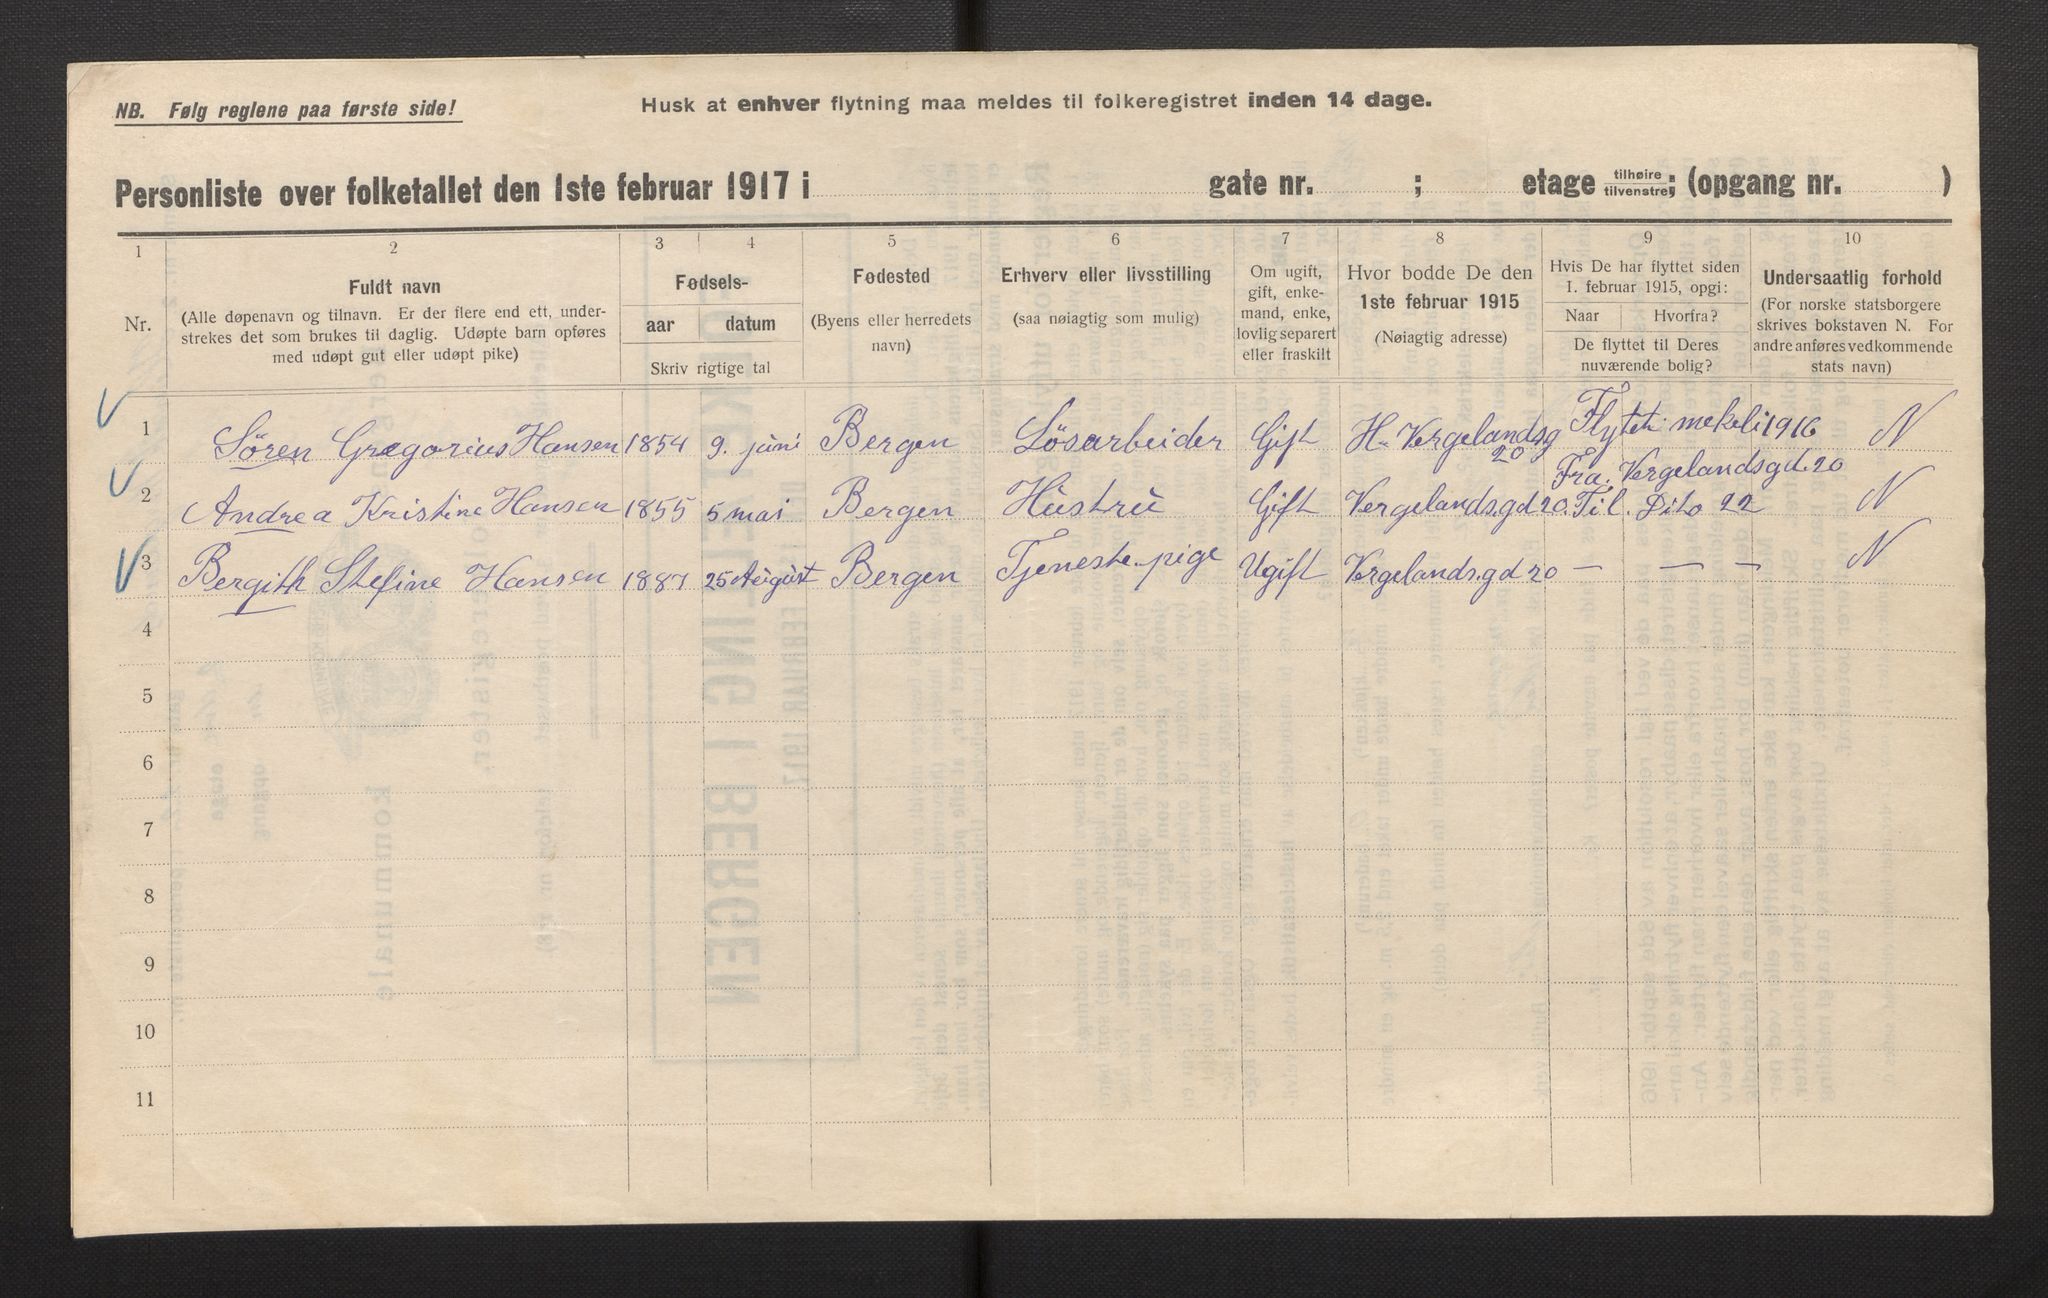 NB. Følg reglene paa første side!
Husk at enhver flytning maa meldes til folkeregistret inden 14 dage.
Personliste over folketallet den 1ste februar 1917 i gate nr. ; etage tilhøire tilvenstre; (opgang nr. )
1 2 3 4 5 6 7 8 9 10
Nr.
Fuldt navn
(Alle døpenavn og tilnavn. Er der flere end ett, under-
strekes det som brukes til daglig. Udøpte barn opføres
med udøpt gut eller udøpt pike)
Fødsels-
aar datum
Skriv rigtige tal
Fødested
(Byens eller herredets
navn)
Erhverv eller livsstilling
(saa nøiagtig som mulig)
Om ugift,
gift, enke-
mand, enke,
lovlig separert
eller fraskilt
Hvor bodde De den
1ste februar 1915
(Nøiagtig adresse)
Hvis De har flyttet siden
1. februar 1915, opgi:
Naar Hvorfra?
De flyttet til Deres
nuværende bolig?
Undersaatlig forhold
(For norske statsborgere
skrives bokstaven N. For
andre anføres vedkommende
stats navn)
1 Søren Gregorius Hansen 1854 9. juni Bergen Løsarbeider Gift H. Vergelandsg 20 Flytet 1916 N
Fra. Vergelandsgd. 20
2 Andrea Kristine Hansen 1855 5 mai Bergen Hustru Gift Vergelands.gd 20. Til. Dito 22 N
3 Bergith Stefine Hansen 1887 25 August Bergen Tjeneste-pige Ugift Vergelands.gd 20 — — — N
4
5
6
7
8
9
10
11